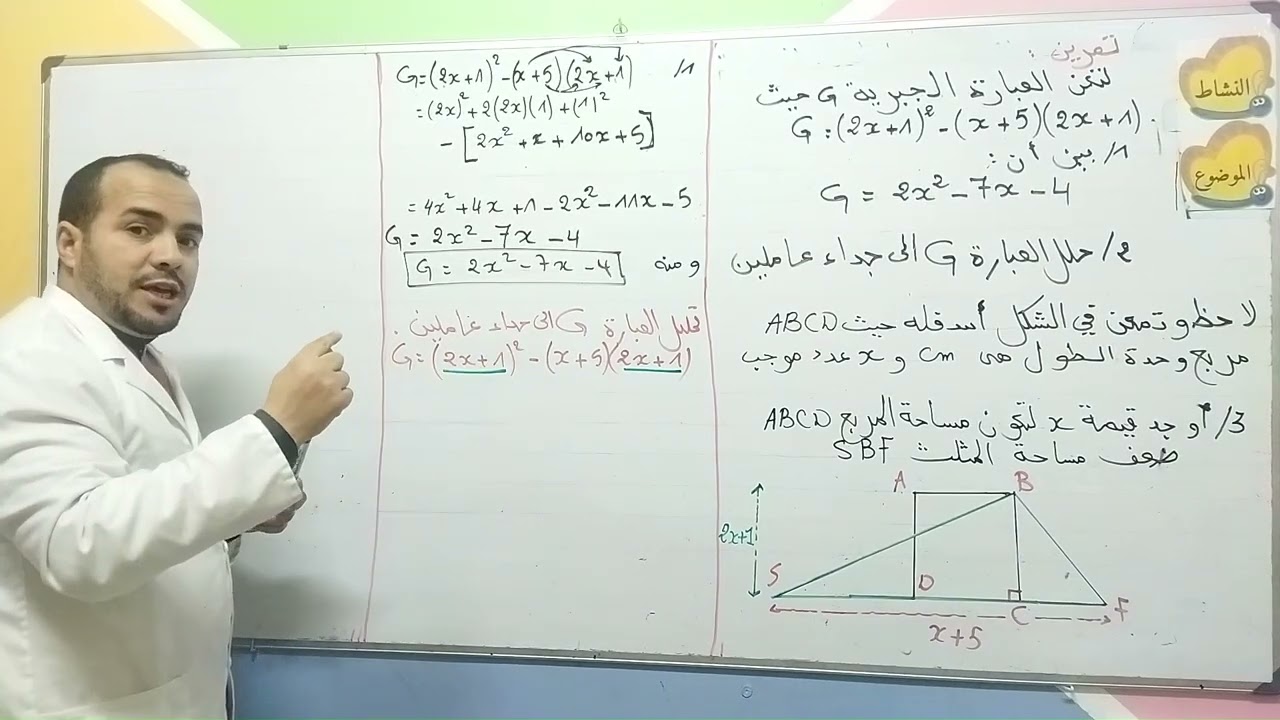 النشاط
الموضوع
تمرين :
لتكن العبارة الجبرية G حيث
G = (2x+1)² - (x+5)(2x+1).
1/ بين أن :
G = 2x² - 7x - 4
2/ حلل العبارة G الى جداء عاملين
لاحظ و تمعن في الشكل أسفله حيث ABCD
مربع وحدة الطول هي cm و x عدد موجب
3/ أوجد قيمة x لتكون مساحة المربع ABCD
ضعف مساحة المثلث SBF
A
B
2x+1
S
D
C
F
x+5
1/
G = (2x+1)² - (x+5)(2x+1)
= (2x)² + 2(2x)(1) + (1)²
- [2x² + x + 10x + 5]
= 4x² + 4x + 1 - 2x² - 11x - 5
G = 2x² - 7x - 4
و منه G = 2x² - 7x - 4
تحليل العبارة G الى جداء عاملين .
G = (2x+1)² - (x+5)(2x+1)